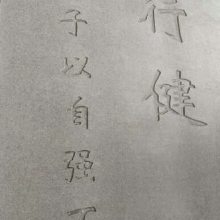 行健
子以自强不